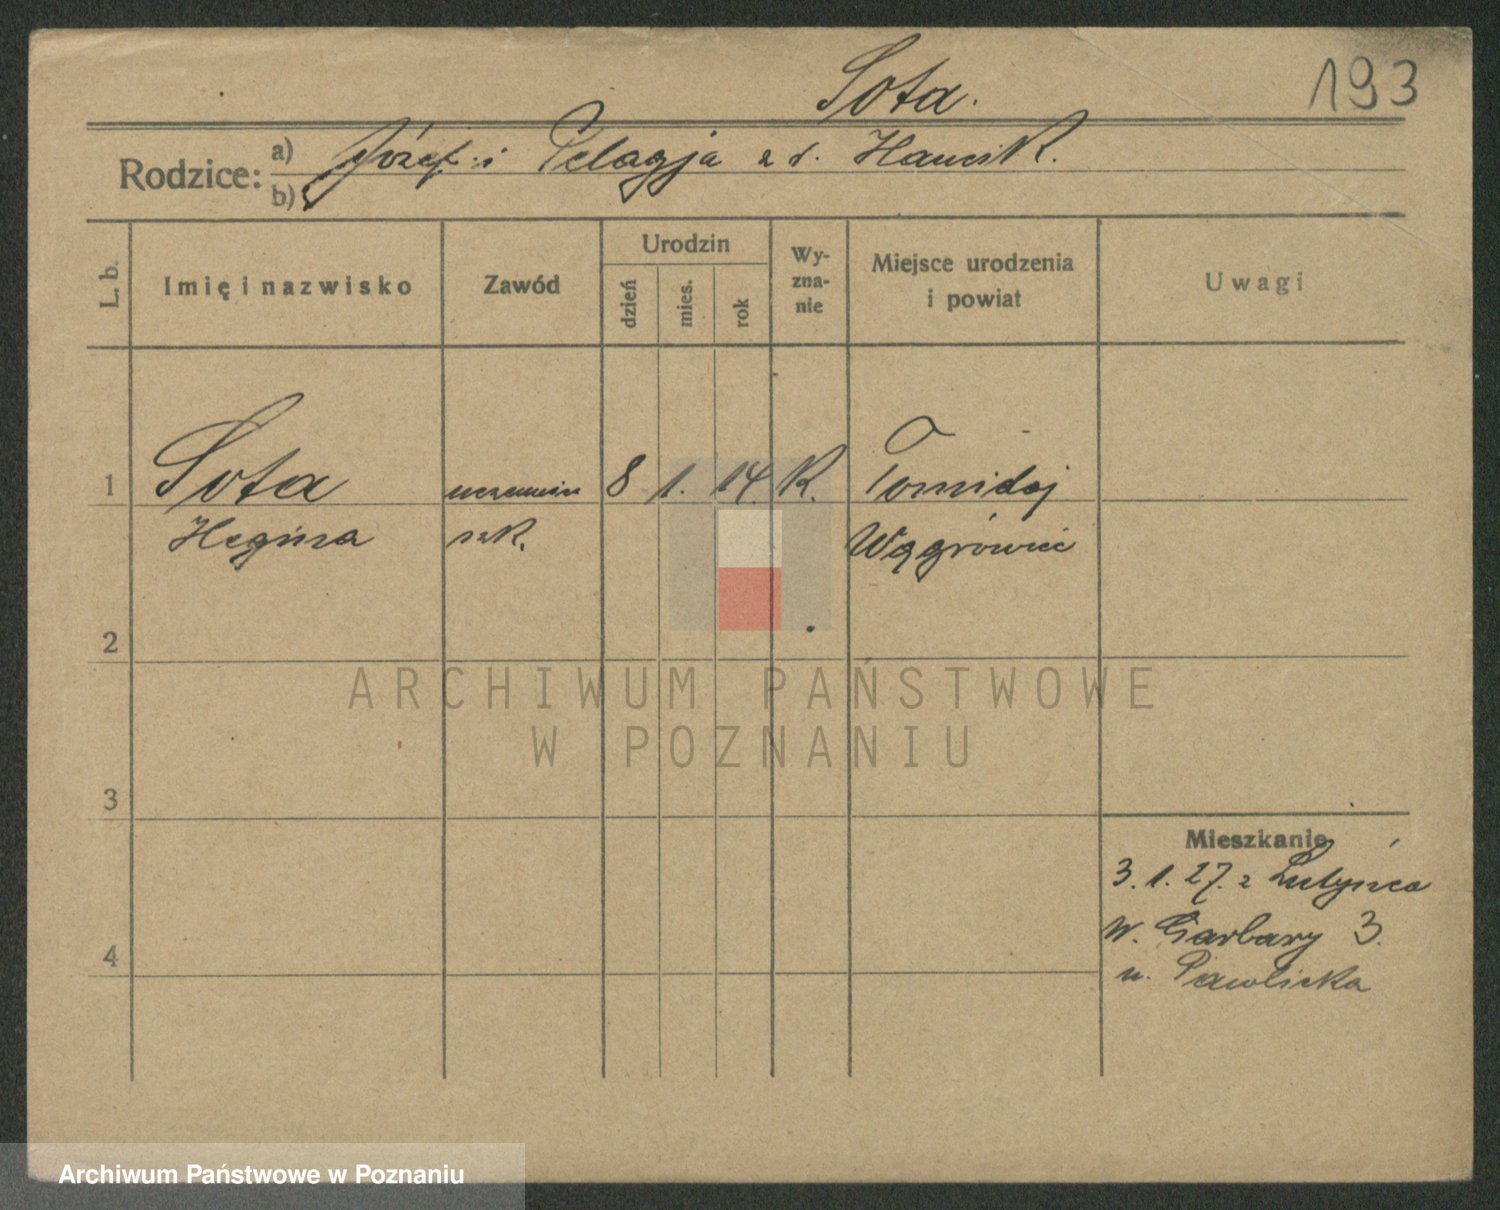 Sota.
193
Rodzice:
a) Józef i Pelagja z d. Hancik.
b)
L. b.
Imię i nazwisko
Zawód
Urodzin
dzień
mies.
rok
Wy-
zna-
nie
Miejsce urodzenia
i powiat
Uwagi
1
Sota
uczennica
8
1.
14.
R.
Tonndoj
Regina
szk.
Wągrówiec
2
ARCHIWUM PAŃSTWOWE
W POZNANIU
3
Mieszkanie
3.1.27. z
4
W. Garbary 3.
u. Pawlicka
Archiwum Państwowe w Poznaniu